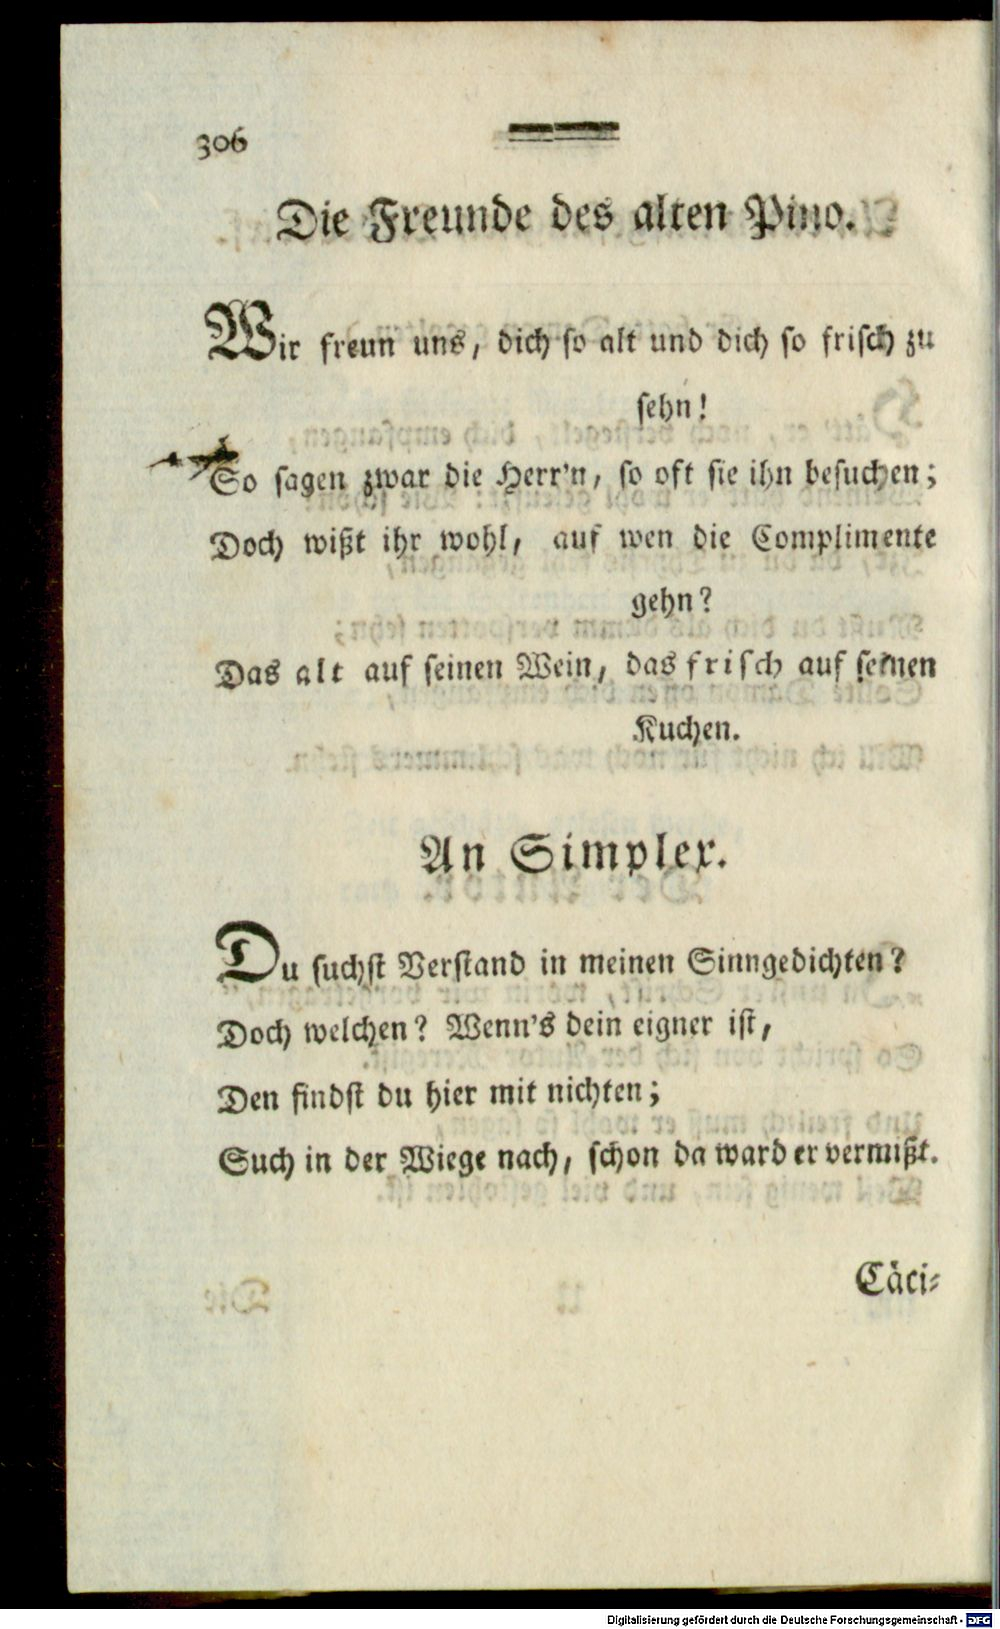 306
Die Freunde des alten Pino.
Wir freun uns, dich so alt und dich so frisch zu
sehn!
So sagen zwar die Herr'n, so oft sie ihn besuchen;
Doch wißt ihr wohl, auf wen die Complimente
gehn?
Das alt auf seinen Wein, das frisch auf seinen
Kuchen.
An Simplex.
Du suchst Verstand in meinen Sinngedichten?
Doch welchen? Wenn's dein eigner ist,
Den findst du hier mit nichten;
Such in der Wiege nach, schon da ward er vermißt.
Cäci-
Digitalisierung gefördert durch die Deutsche Forschungsgemeinschaft - DFG